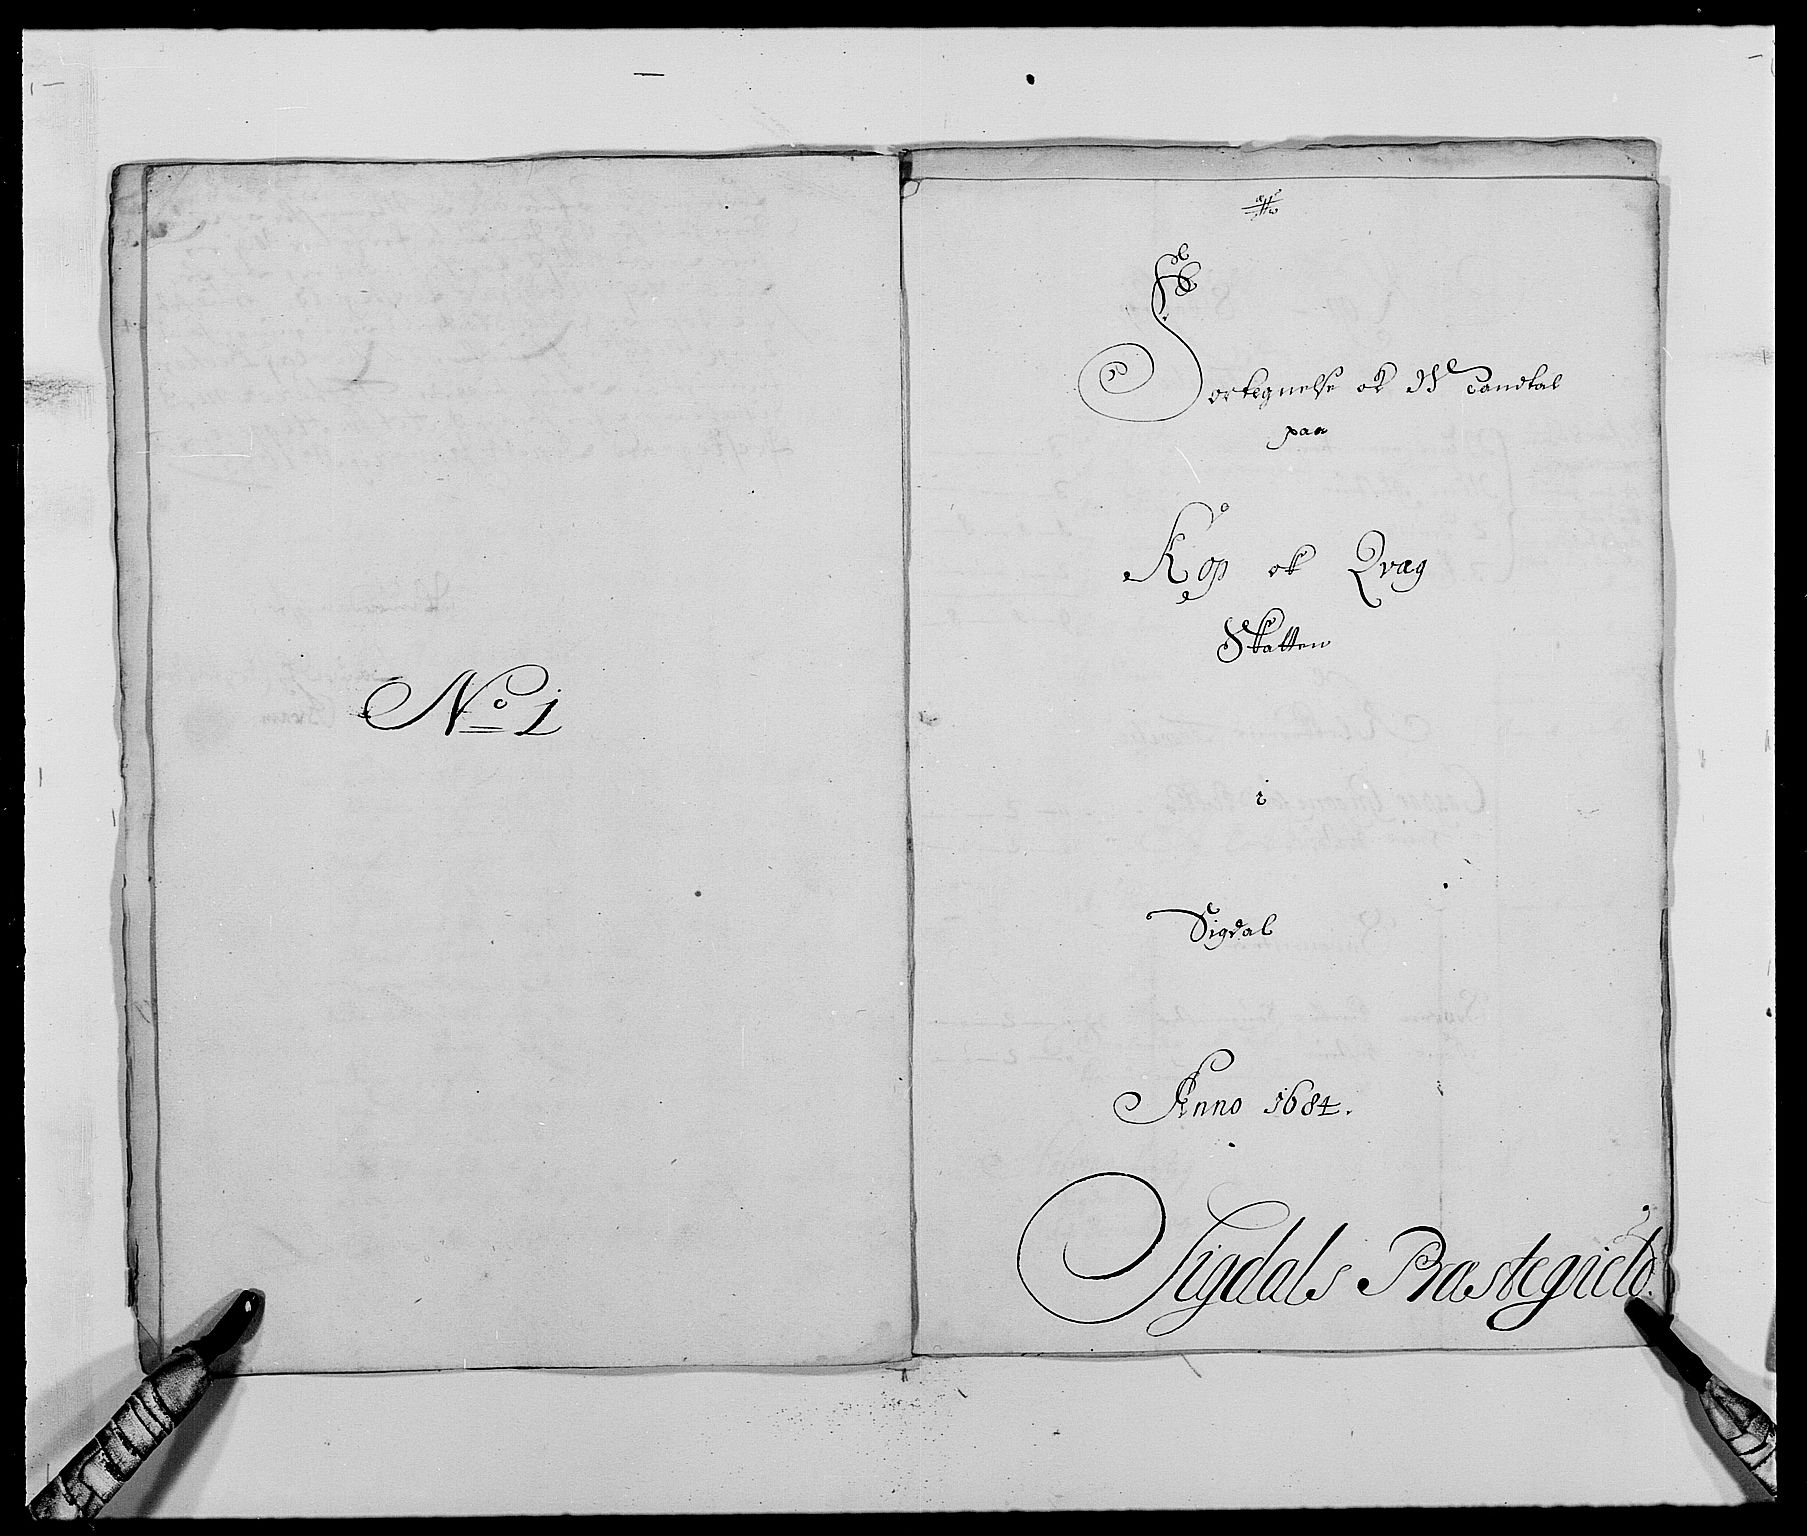 No 1
Fortegnelse ok Mandtal
paa
Kop ok Qvæg
Skatten
i
Sigdal
Anno 1684.
Sigdals Præstegield.